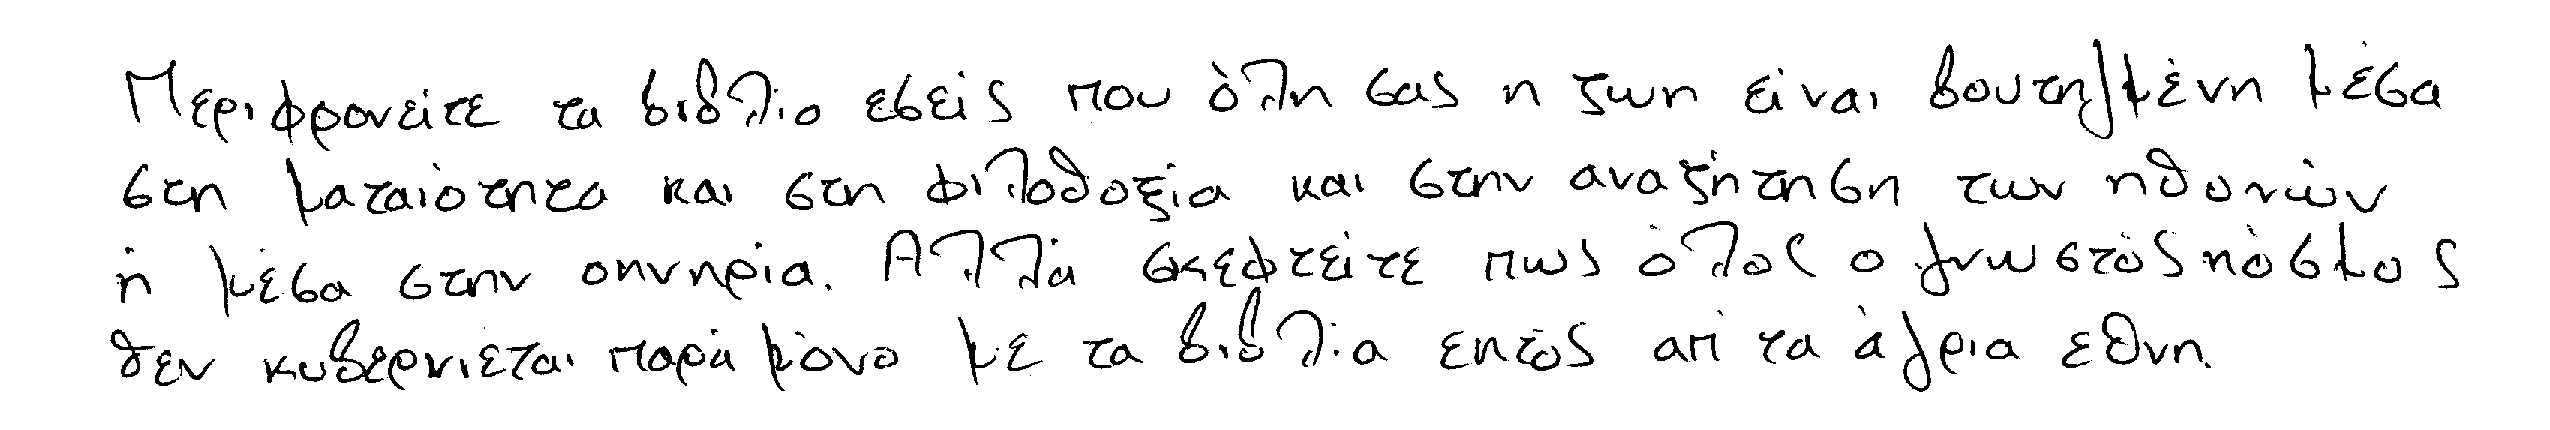 Περιφρονείτε τα βιβλία εσείς που όλη σας η ζωη είναι βουτηγμένη μέσα
στη ματαιότητα και στη φιλοδοξία και στην αναζήτηση των ηδονών
ή μέσα στην οκνηρία. Αλλά σκεφτείτε πως όλος ο γνωστός κόσμος
δεν κυβερνιεται παρά μόνο με τα βιβλία εκτός απ' τα άγρια εθνη.